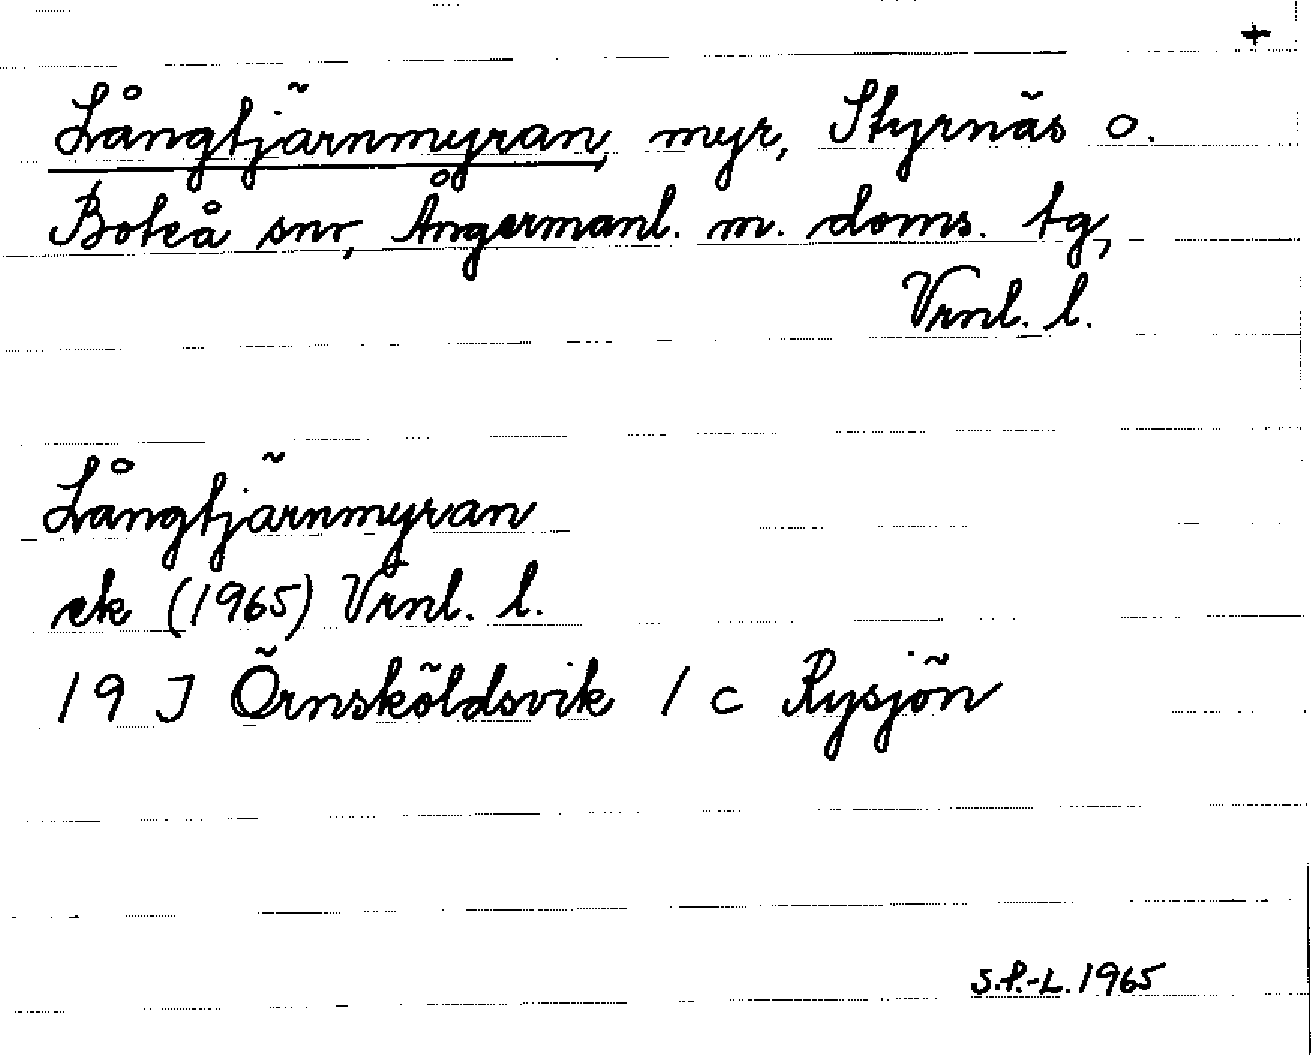 +
Långtjärnmyran, myr, Styrnäs o.
Boteå snr, Ångermanl. m. doms. tg,
Vrnl. l.
Långtjärnmyran
ek (1965) Vrnl. l.
19 J Örnsköldsvik 1 c Rysjön
S.P.-L. 1965